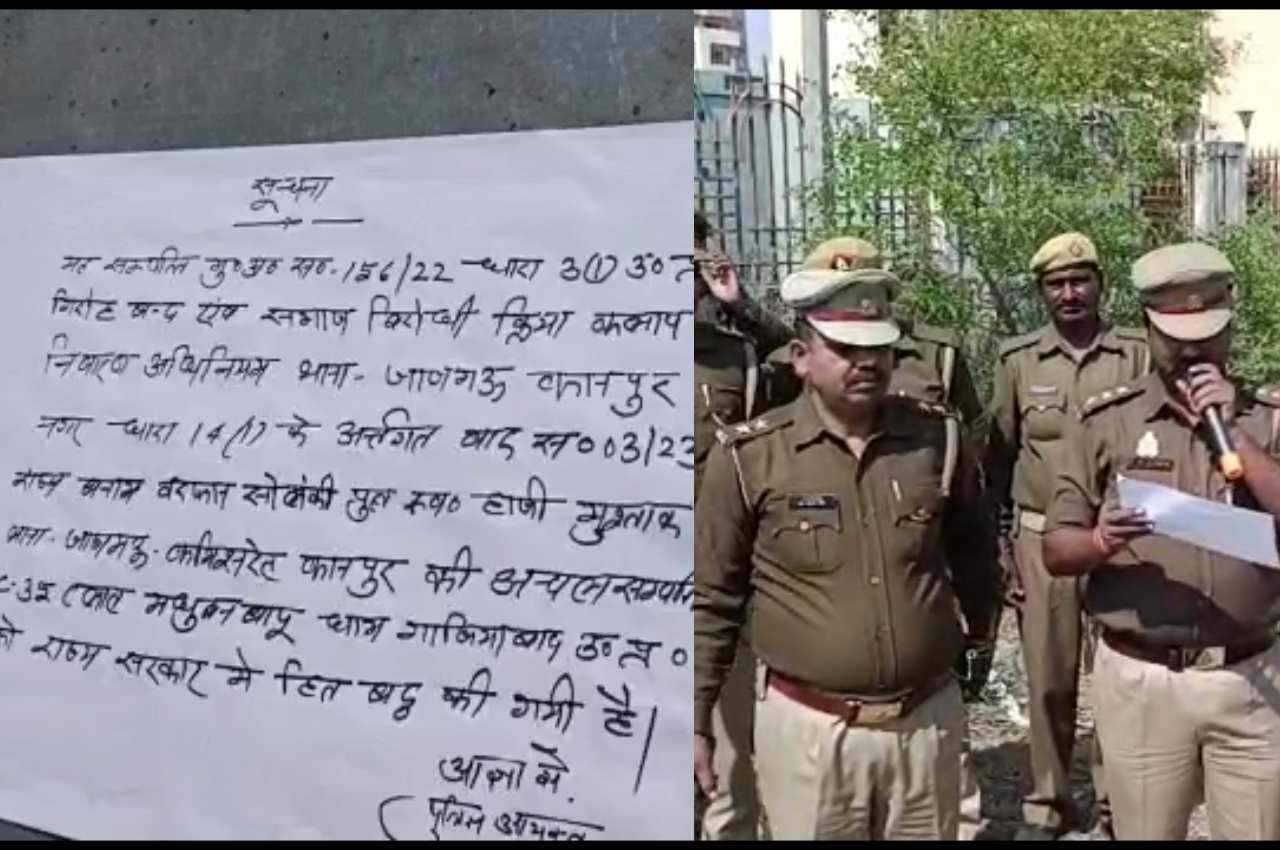 सूचना
यह सम्पत्ति मु०अ० स०-156/22 धारा 3(1) उ० प्र
गिरोह बन्द एंव समाज विरोधी क्रिया कलाप
निवारण अधिनियम थाना- जाजमऊ कानपुर
नगर धारा 14(1) के अर्न्तगत वाद स० 03/23
राज्य बनाम इरफान सोलंकी पुत्र स्व० हाजी मुश्ताक
थाना- जाजमऊ- कमिश्नरेट कानपुर की अचल सम्पत्ति
मधुबन बापू धाम गाजियाबाद उ० प्र०
को राज्य सरकार मे हित बद्व की गयी है।
आज्ञा से.
पुलिस आयुक्त